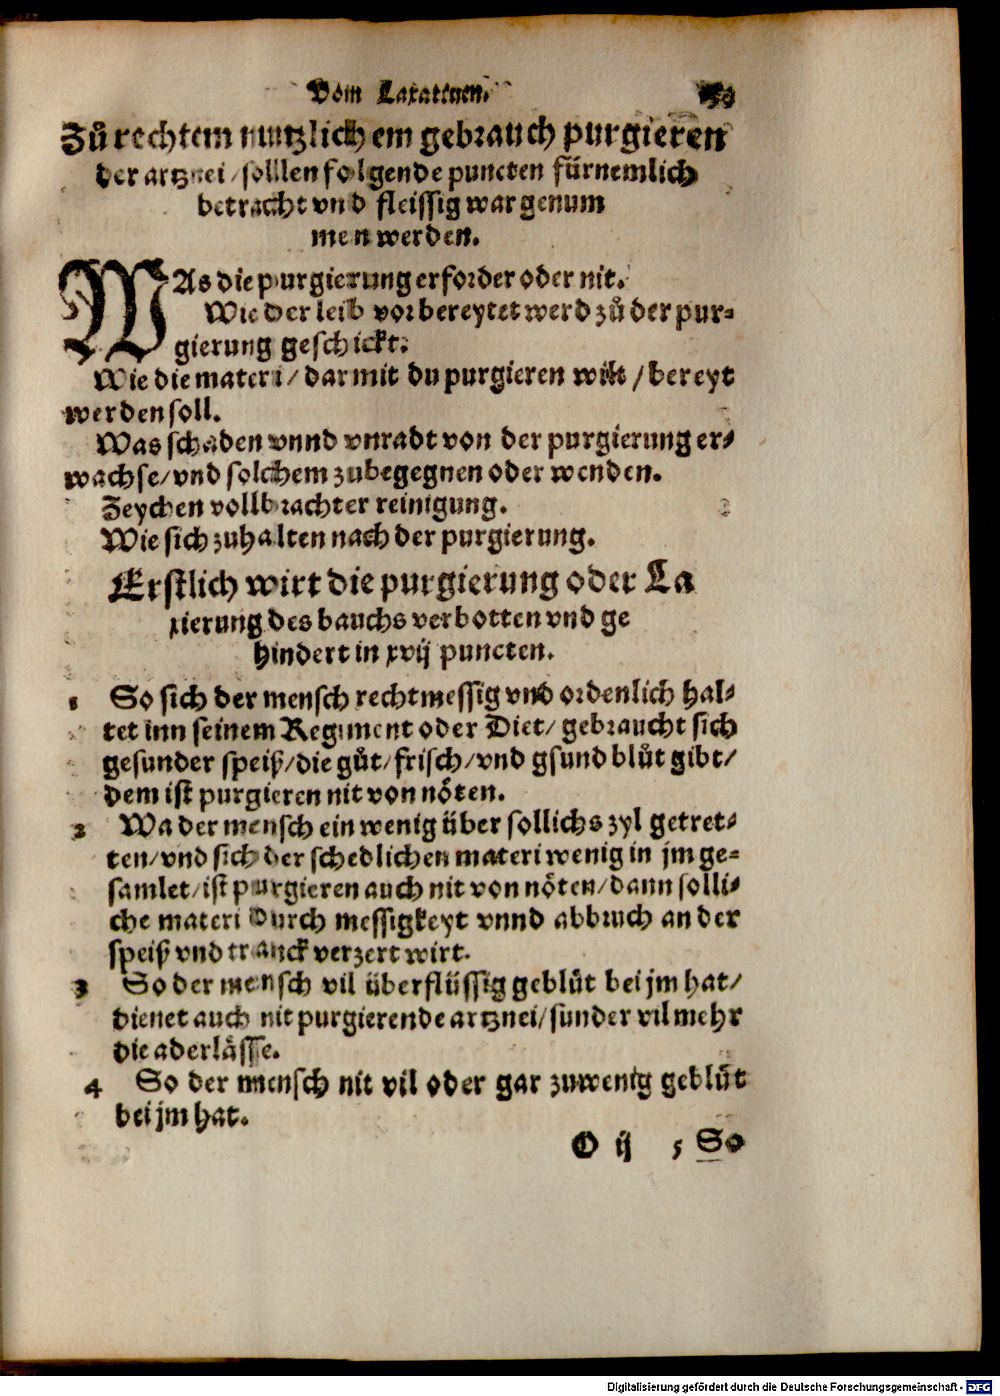 Vom Laxatiuen.
Zů rechtem nutzlichem gebrauch purgieren
der artznei / solllen folgende puncten fürnemlich
betracht vnd fleissig war genum
men werden.
WAs die purgierung erforder oder nit.
Wie der leib vorbereytet werd zů der pur-
gierung geschickt.
Wie die materi / darmit du purgieren wilt / bereyt
werden soll.
Was schaden vnnd vnradt von der purgierung er-
wachse / vnd solchem zubegegnen oder wenden.
Zeychen vollbrachter reinigung.
Wie sich zuhalten nach der purgierung.
Erstlich wirt die purgierung oder La
xierung des bauchs verbotten vnd ge
hindert in xvij puncten.
1 So sich der mensch rechtmessig vnd ordenlich hal-
tet inn seinem Regiment oder Diet / gebraucht sich
gesunder speiß / die gůt / frisch / vnd gsund blůt gibt /
dem ist purgieren nit von nöten.
2 Wa der mensch ein wenig über sollichs zyl getret-
ten / vnd sich der schedlichen materi wenig in jm ge-
samlet / ist purgieren auch nit von nöten / dann solli-
che materi durch messigkeyt vnnd abbruch an der
speiß vnd tranck verzert wirt.
3 So der mensch vil überflüssig geblůt bei jm hat /
dienet auch nit purgierende artznei / sunder vil mehr
die aderlässe.
4 So der mensch nit vil oder gar zuwenig geblůt
bei jm hat.
O ij 5 So
Digitalisierung gefördert durch die Deutsche Forschungsgemeinschaft - DFG